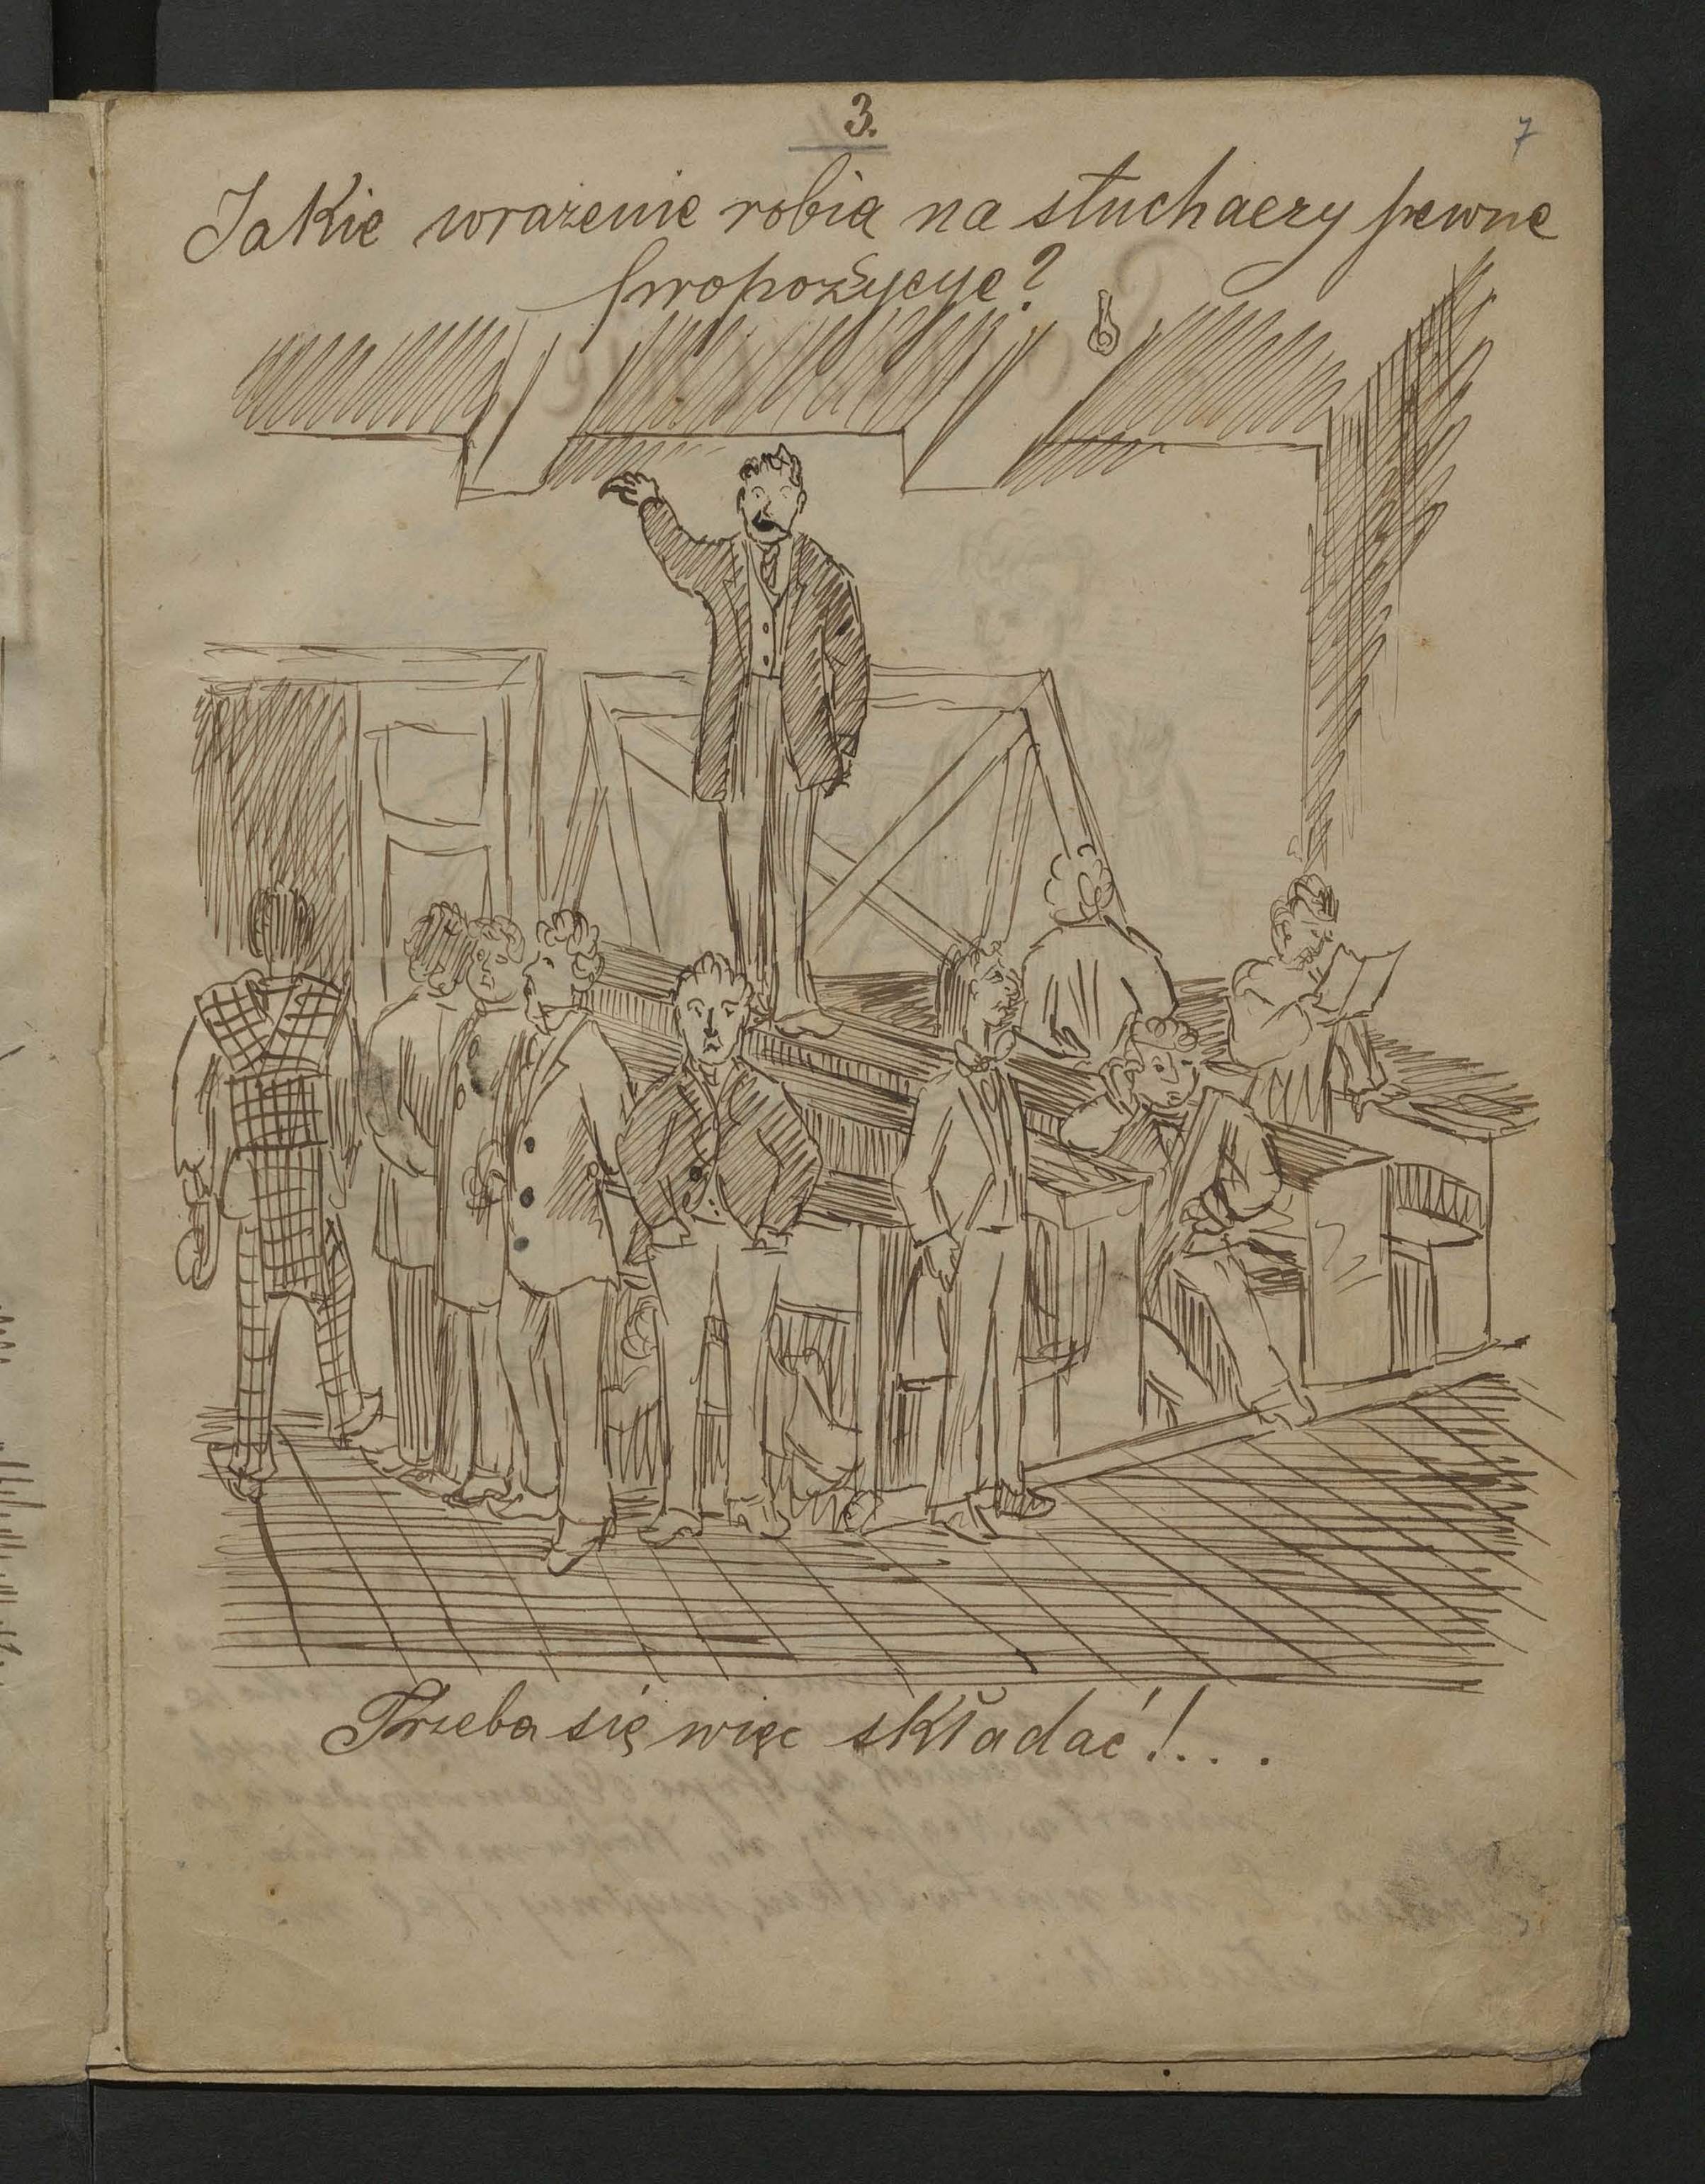 3.
7
Jakie wrażenie robią na słuchaczy pewne
propozycye?
Trzeba się więc składać!...